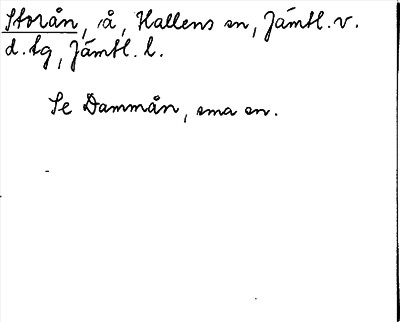 Storån, å, Hallens sn, Jämtl. v.
d. tg, Jämtl. l.
Se Dammån, sma sn.